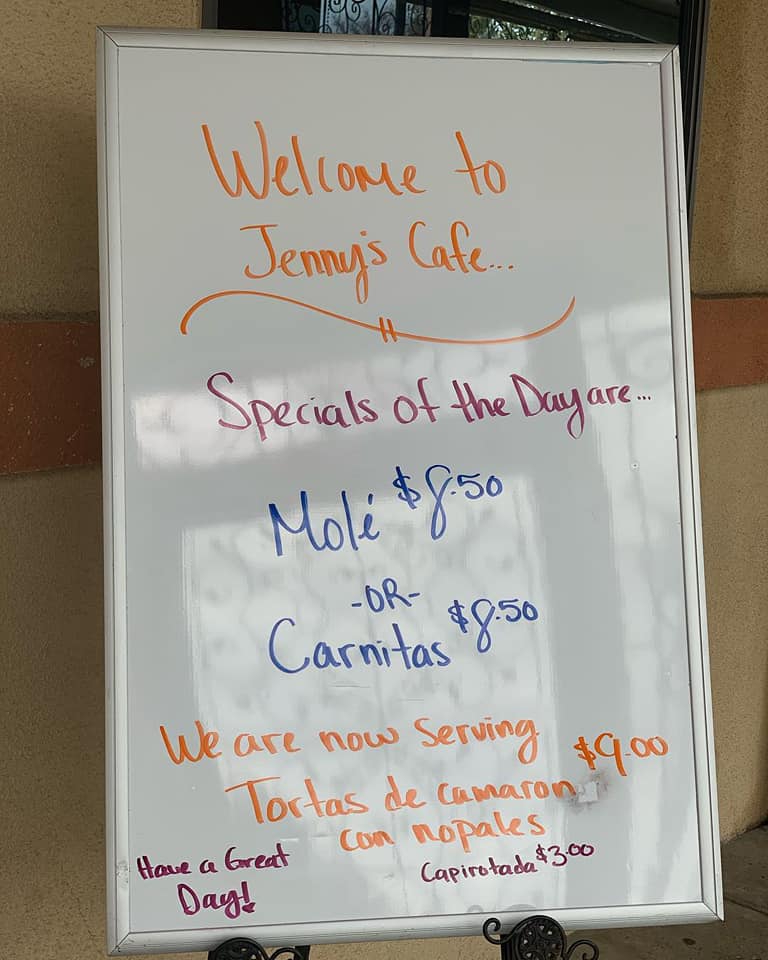 Welcome to
Jenny's Cafe...
Specials of the Day are...
Molé $8.50
-OR-
Carnitas $8.50
We are now serving
Tortas de camaron $9.00
con nopales
Have a Great
Day!
Capirotada $3.00